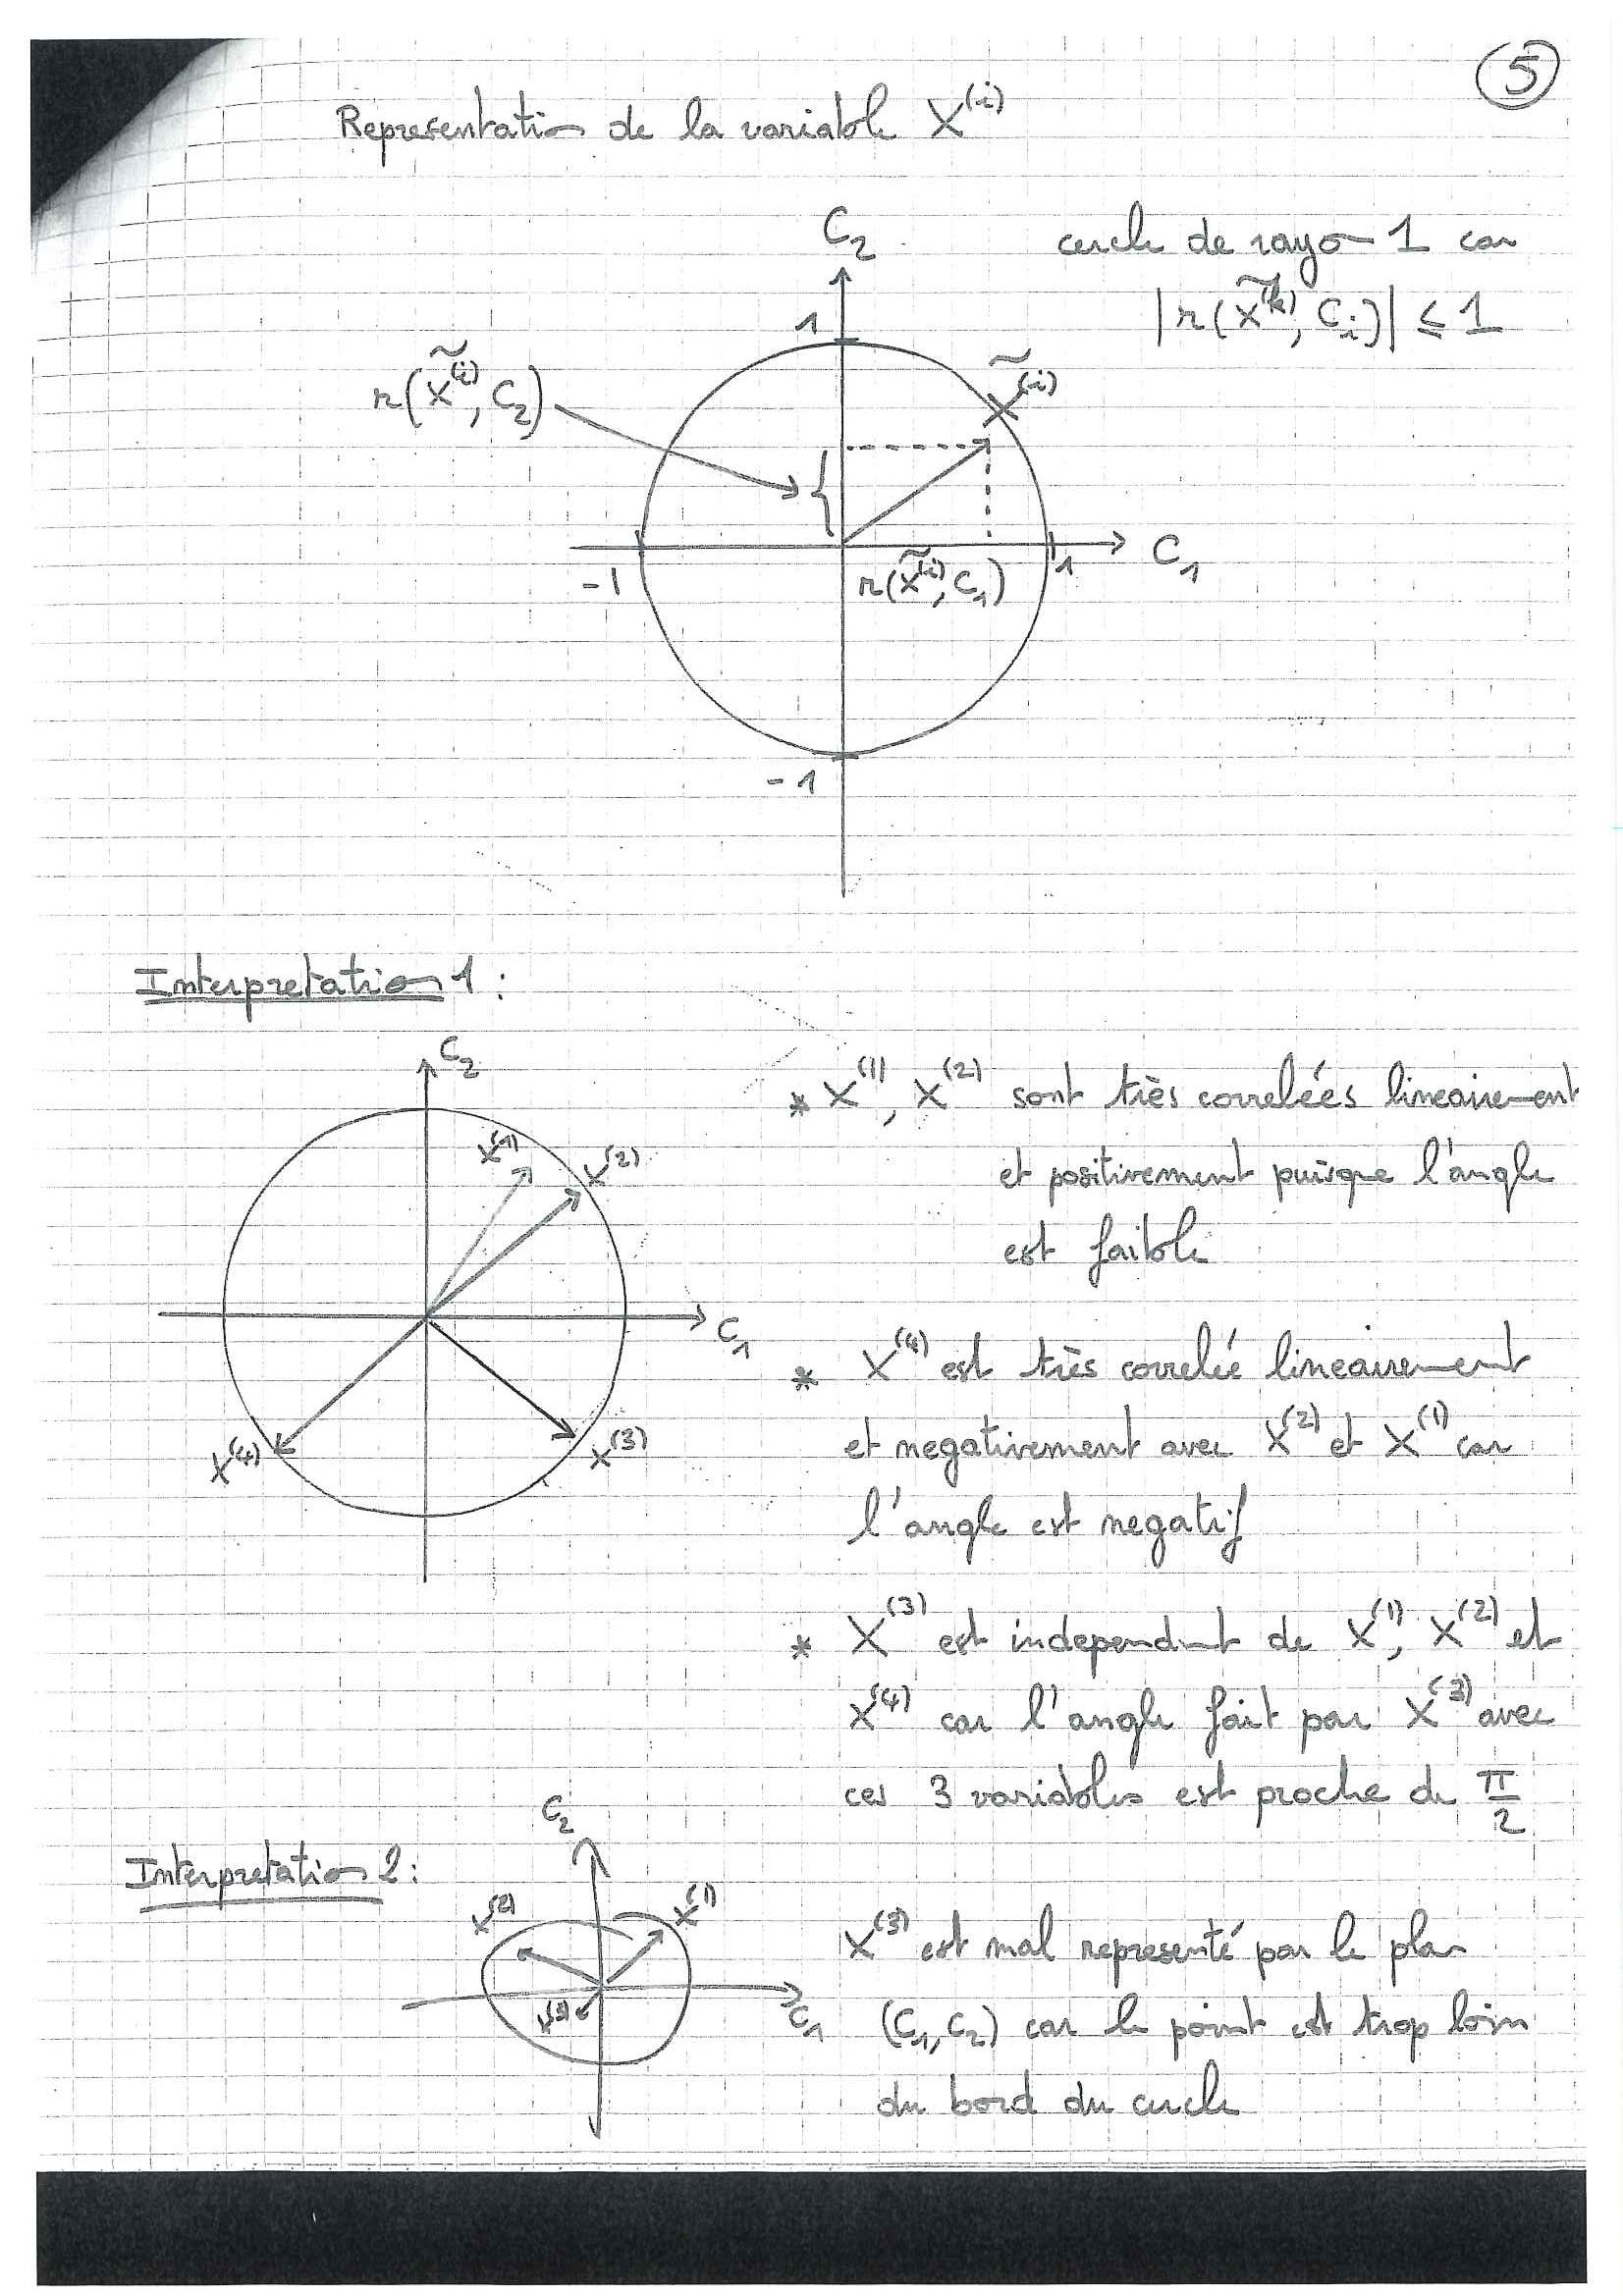 5
Representation de la variable X^(i)
C₂
cercle de rayon 1 car
|r(X̃^(k), C_i)| ≤ 1
1
X̃^(i)
r(X̃^(i), C₂)
-1
r(X̃^(i), C₁)
1
C₁
-1
Interpretation 1 :
C₂
X^(1)
X^(2)
C₁
X^(4)
X^(3)
* X^(1), X^(2) sont très correlées lineairement
et positivement puisque l'angle
est faible
* X^(4) est très correlée lineairement
et negativement avec X^(2) et X^(1) car
l'angle est negatif
* X^(3) est independant de X^(1), X^(2) et
X^(4) car l'angle fait par X^(3) avec
ces 3 variables est proche de π/2
Interpretation 2 :
C₂
X^(2)
X^(1)
X^(3)
C₁
X^(3) est mal representé par le plan
(C₁, C₂) car le point est trop loin
du bord du cercle